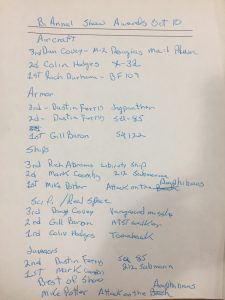 Bi Annual Show Awards Oct 10
Aircraft
3rd Dan Covey - M-2 Douglas Mail Plane
2d Colin Hodges X-32
1st Rich Durham - BF 109
Armor
3rd - Dustin Ferris Jagpanther
2d - Dustin Ferris su-85
1st Gill Baron SQ 122
Ships
3rd Rich Abrams Liberty Ship
2d Mark 212 Submarine
1st Mike Potter Attack on the Amphibious
Sci fi / Real Space
3rd Doug Covey Vanguard missile
2nd Gill Baron AT ST walker
1rd Colin Hodges Tomahawk
Juniors
2nd Dustin Ferris su 85
1st Mark 212 Submarin
Best of Show
Mike Potter Attack on the Amphibious